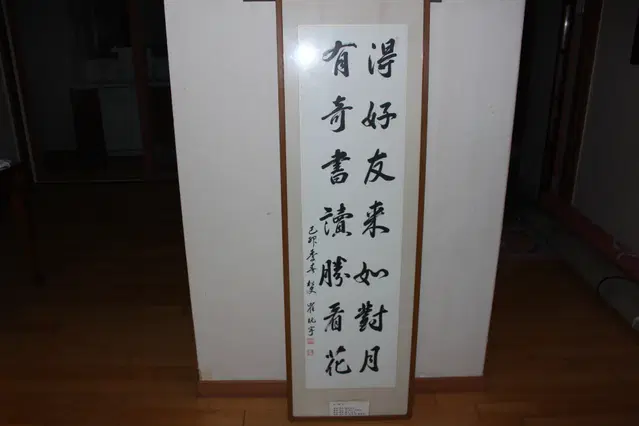 得好友来如對月
有奇書讀勝看花
己卯季春